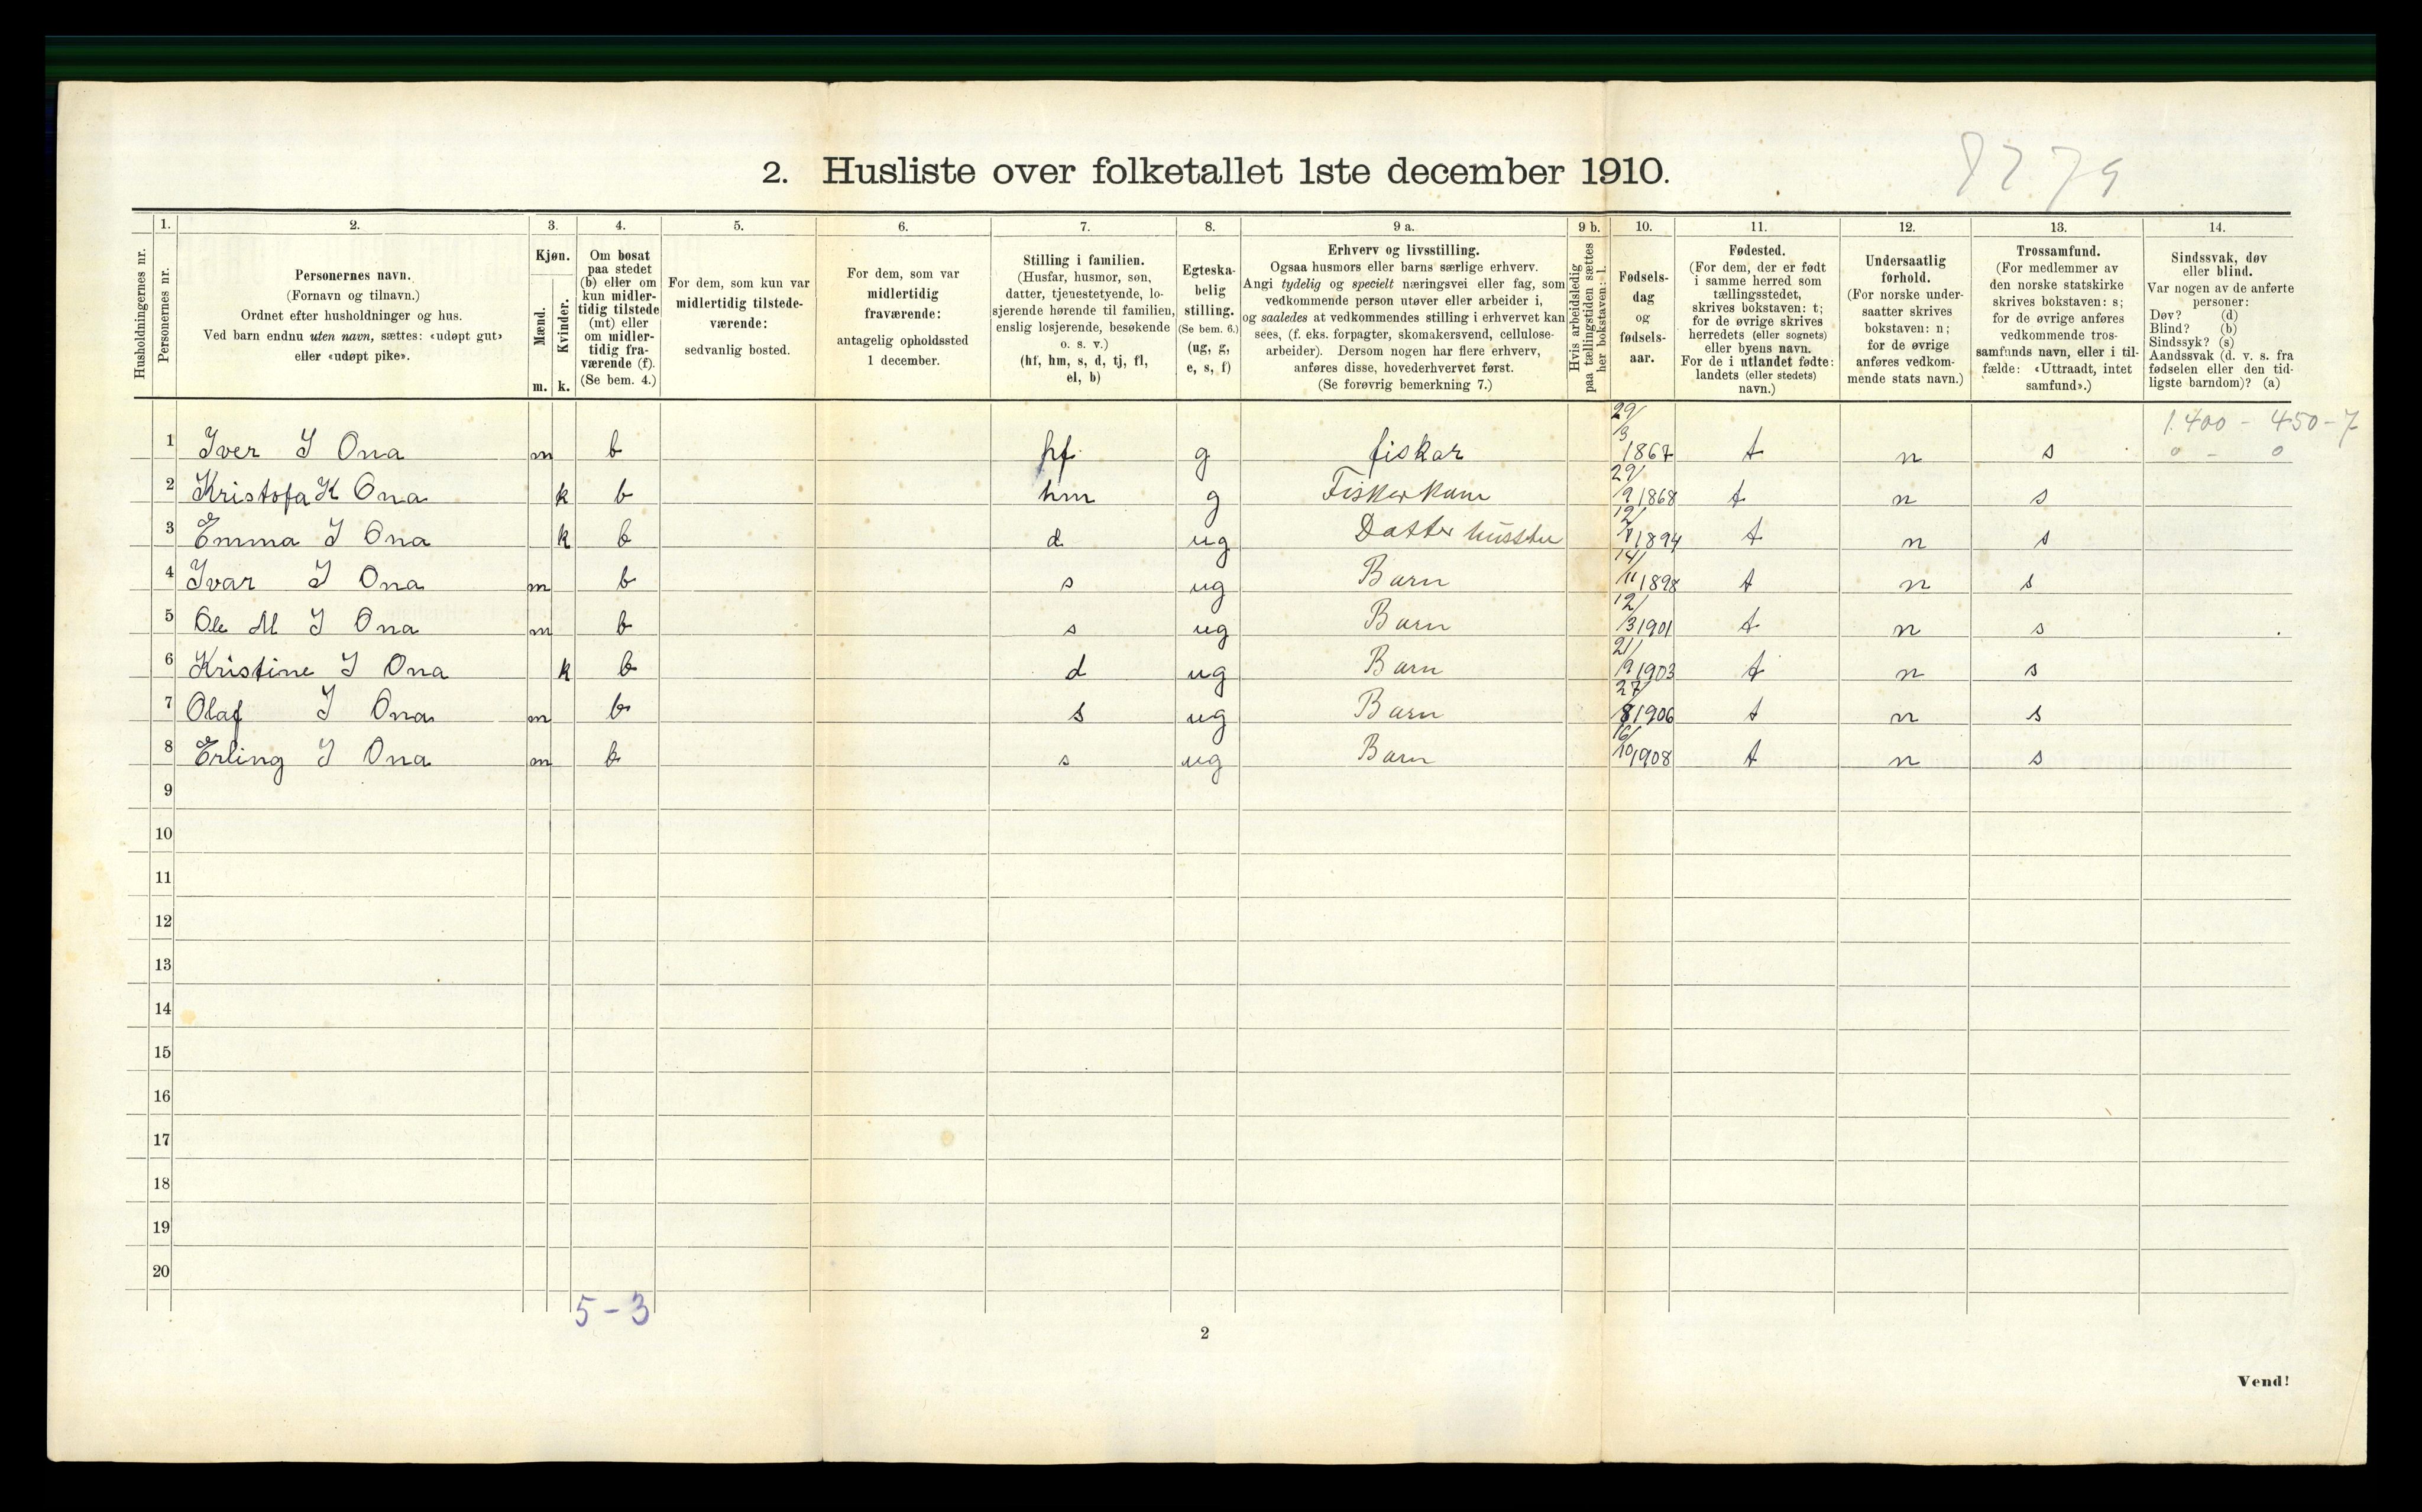 2. Husliste over folketallet 1ste december 1910.
1. 2. 3. 4. 5. 6. 7. 8. 9 a. 9 b. 10. 11. 12. 13. 14.
Husholdningernes nr.
Personernes nr.
Personernes navn.
(Fornavn og tilnavn.)
Ordnet efter husholdninger og hus.
Ved barn endnu uten navn, sættes: «udøpt gut»
eller «udøpt pike».
Kjøn.
Mænd.
Kvinder.
m. k.
Om bosat
paa stedet
(b) eller om
kun midler-
tidig tilstede
(mt) eller
om midler-
tidig fra-
værende (f).
(Se bem. 4.)
For dem, som kun var
midlertidig tilstede-
værende:
sedvanlig bosted.
For dem, som var
midlertidig
fraværende:
antagelig opholdssted
1 december.
Stilling i familien.
(Husfar, husmor, søn,
datter, tjenestetyende, lo-
sjerende hørende til familien,
enslig losjerende, besøkende
o. s. v.)
(hf, hm, s, d, tj, fl,
el, b)
Egteska-
belig
stilling.
(Se bem. 6.)
(ug, g,
e, s, f)
Erhverv og livsstilling.
Ogsaa husmors eller barns særlige erhverv.
Angi tydelig og specielt næringsvei eller fag, som
vedkommende person utøver eller arbeider i,
og saaledes at vedkommendes stilling i erhvervet kan
sees, (f. eks. forpagter, skomakersvend, cellulose-
arbeider). Dersom nogen har flere erhverv,
anføres disse, hovederhvervet først.
(Se forøvrig bemerkning 7.)
Hvis arbeidsledig
paa tællingstiden sættes
her bokstaven: l.
Fødsels-
dag
og
fødsels-
aar.
Fødested.
(For dem, der er født
i samme herred som
tællingsstedet,
skrives bokstaven: t;
for de øvrige skrives
herredets (eller sognets)
eller byens navn.
For de i utlandet fødte:
landets (eller stedets)
navn.)
Undersaatlig
forhold.
(For norske under-
saatter skrives
bokstaven: n;
for de øvrige
anføres vedkom-
mende stats navn.)
Trossamfund.
(For medlemmer av
den norske statskirke
skrives bokstaven: s;
for de øvrige anføres
vedkommende tros-
samfunds navn, eller i til-
fælde: «Uttraadt, intet
samfund».)
Sindssvak, døv
eller blind.
Var nogen av de anførte
personer:
Døv? (d)
Blind? (b)
Sindssyk? (s)
Aandssvak (d. v. s. fra
fødselen eller den tid-
ligste barndom)? (a)
1.400 - 450-7
1 Iver I Ona m b hf g fiskar 29/3 1867 t n s 0 - 0
2 Kristofa K Ona k b hm g Fiskerkone 29/9 1868 t n s
3 Emma I Ona k b d ug Datter 1894 t n s
4 Ivar I Ona m b s ug Barn 14/11 1898 t n s
5 Ole M I Ona m b s ug Barn 12/3 1901 t n s
6 Kristine I Ona k b d ug Barn 21/9 1903 t n s
7 Olaf I Ona m b s ug Barn 27/8 1906 t n s
8 Erling I Ona m b s ug Barn 16/10 1908 t n s
9
10
11
12
13
14
15
16
17
18
19
20
5-3
2
Vend!